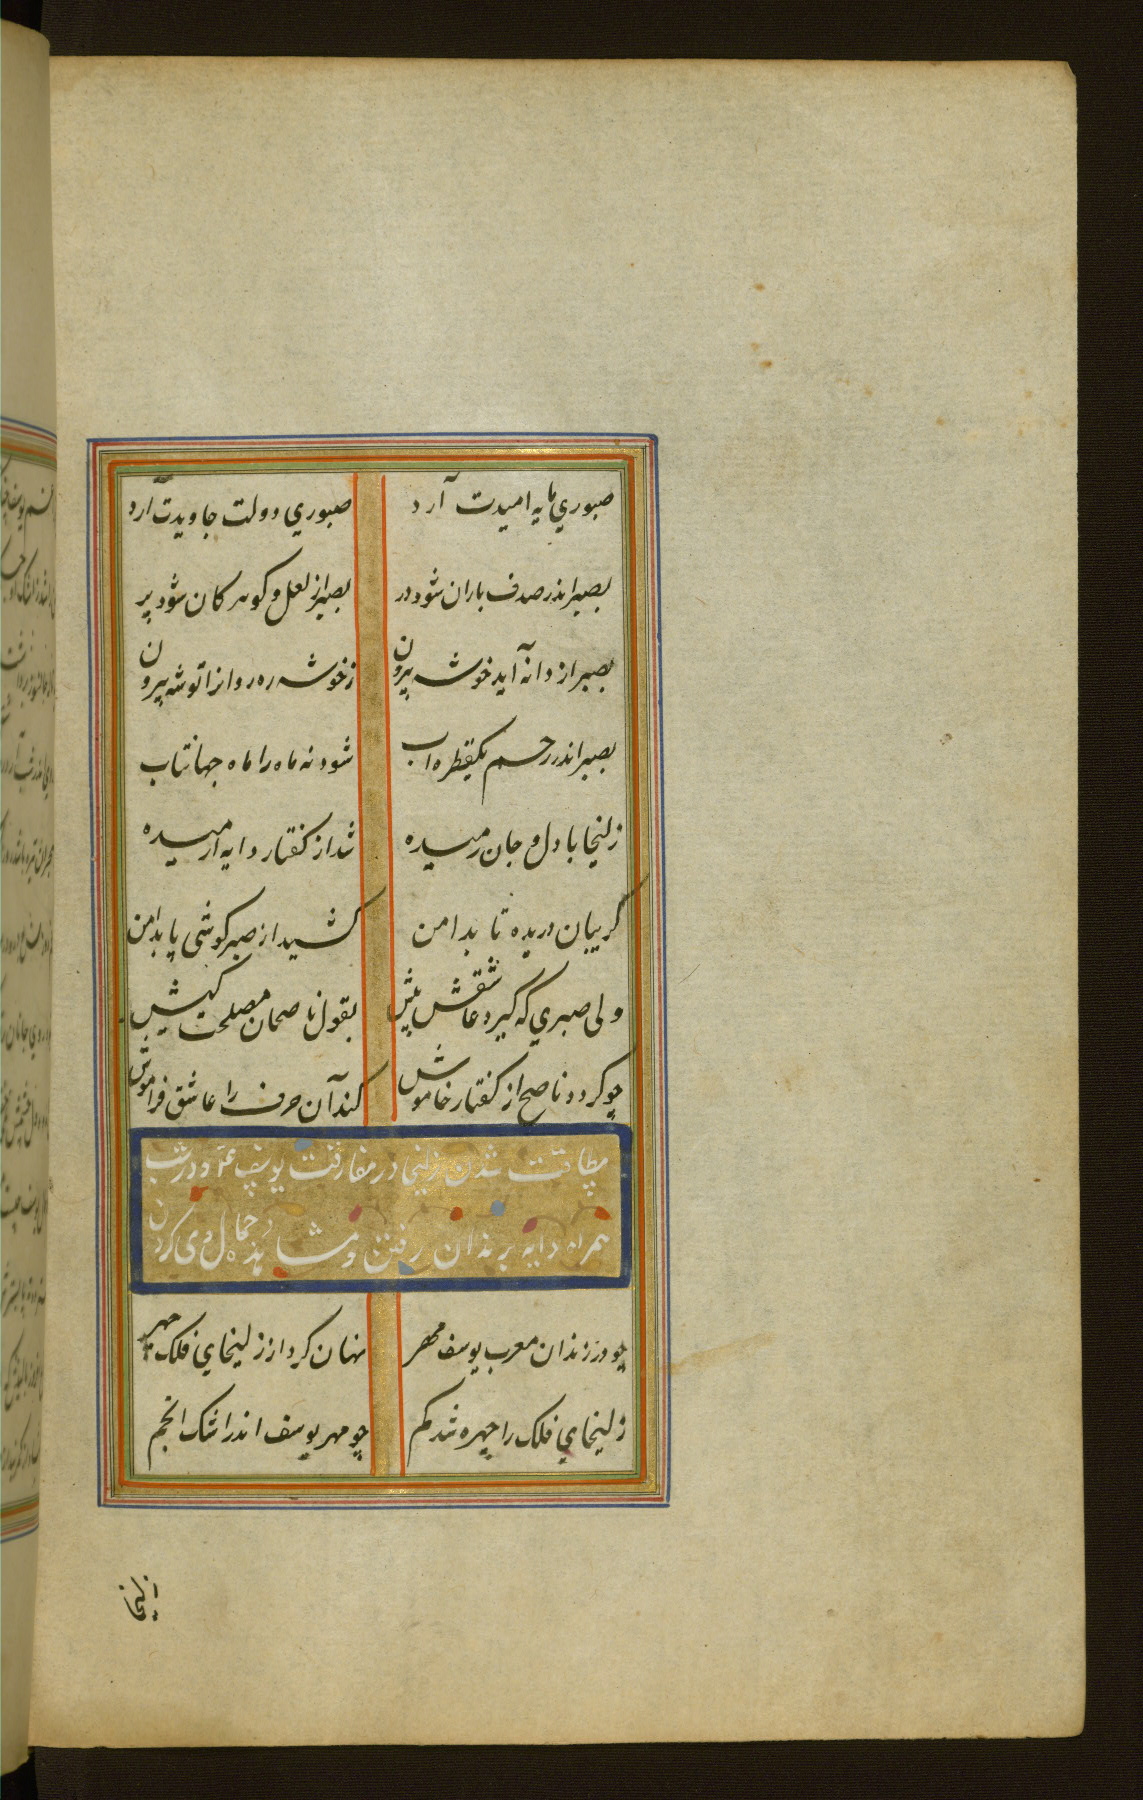 صبوري مايه اميدت آرد صبوري دولت جاويدت آرد
بصبر اندر صدف باران شود در بصبر از لعل و كوهر كان شود پر
بصبر از دانه آيد خوشه بيرون ز خوشه ره روانرا توشه بيرون
بصبر اندر رحم يكقطره اب شود نه ماه را ماه جهانتاب
زليخا با دل و جان رميده شد از كفتار دايه ارميده
گريبان دريده تا بدامن كشيد از صبر كوشی پا بدامن
ولی صبري كه كيرد عاشقش پيش بقول ناصحان مصلحت كيش
چو كردد ناصح از كفتار خاموش كند آن حرف را عاشق فراموش
بيطاقت شدن زليخا در مفارقت يوسف ع م و در شب
همراه دايه بزندان رفتن و مشاهده جمال وی كردن
چو در زندان مغرب يوسف مهر نهان كرد از زليخاي فلك چهر
زليخاي فلك را چهره شد كم چو مهر يوسف اندر اشك انجم